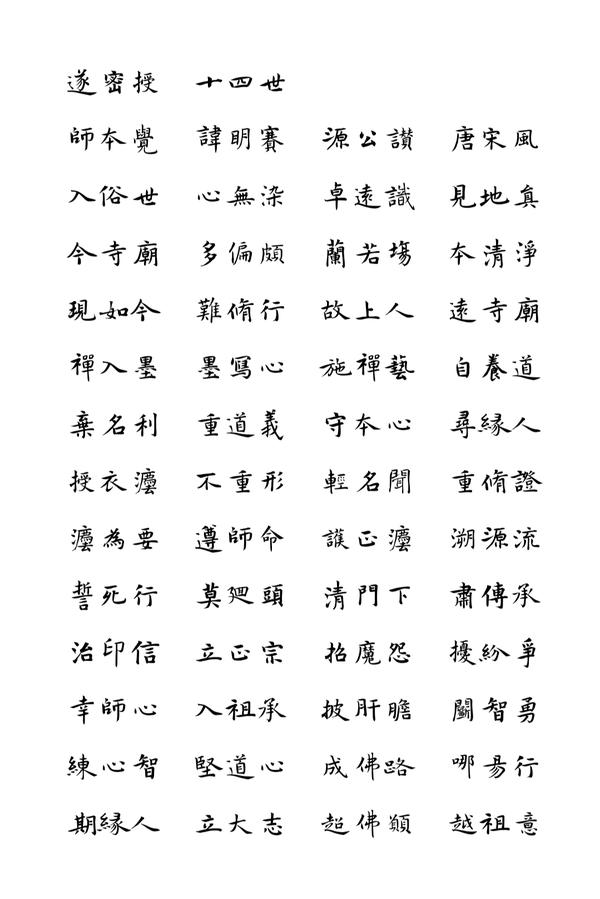 遂密授 十四世
師本覺 諱明賽 源公讃 唐宋風
入俗世 心無染 卓遠識 見地真
今寺廟 多偏頗 蘭若塲 本清淨
現如今 難脩行 故上人 遠寺廟
禪入墨 墨寫心 施禪藝 自養道
棄名利 重道義 守本心 尋緣人
授衣灋 不重形 輕名聞 重脩證
灋為要 遵師命 護正灋 溯源流
誓死行 莫廻頭 清門下 肅傳承
治印信 立正宗 招魔怨 擾紛爭
幸師心 入祖承 披肝膽 闢智勇
練心智 堅道心 成佛路 哪易行
期緣人 立大志 超佛願 越祖意